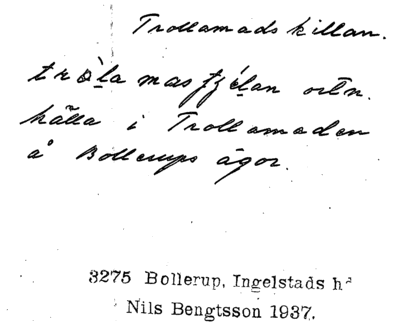 Trollamadskillan.
ortn.
källa i Trollamaden
å Bollerups ägor.
3275 Bollerup, Ingelstads hd
Nils Bengtsson 1937.